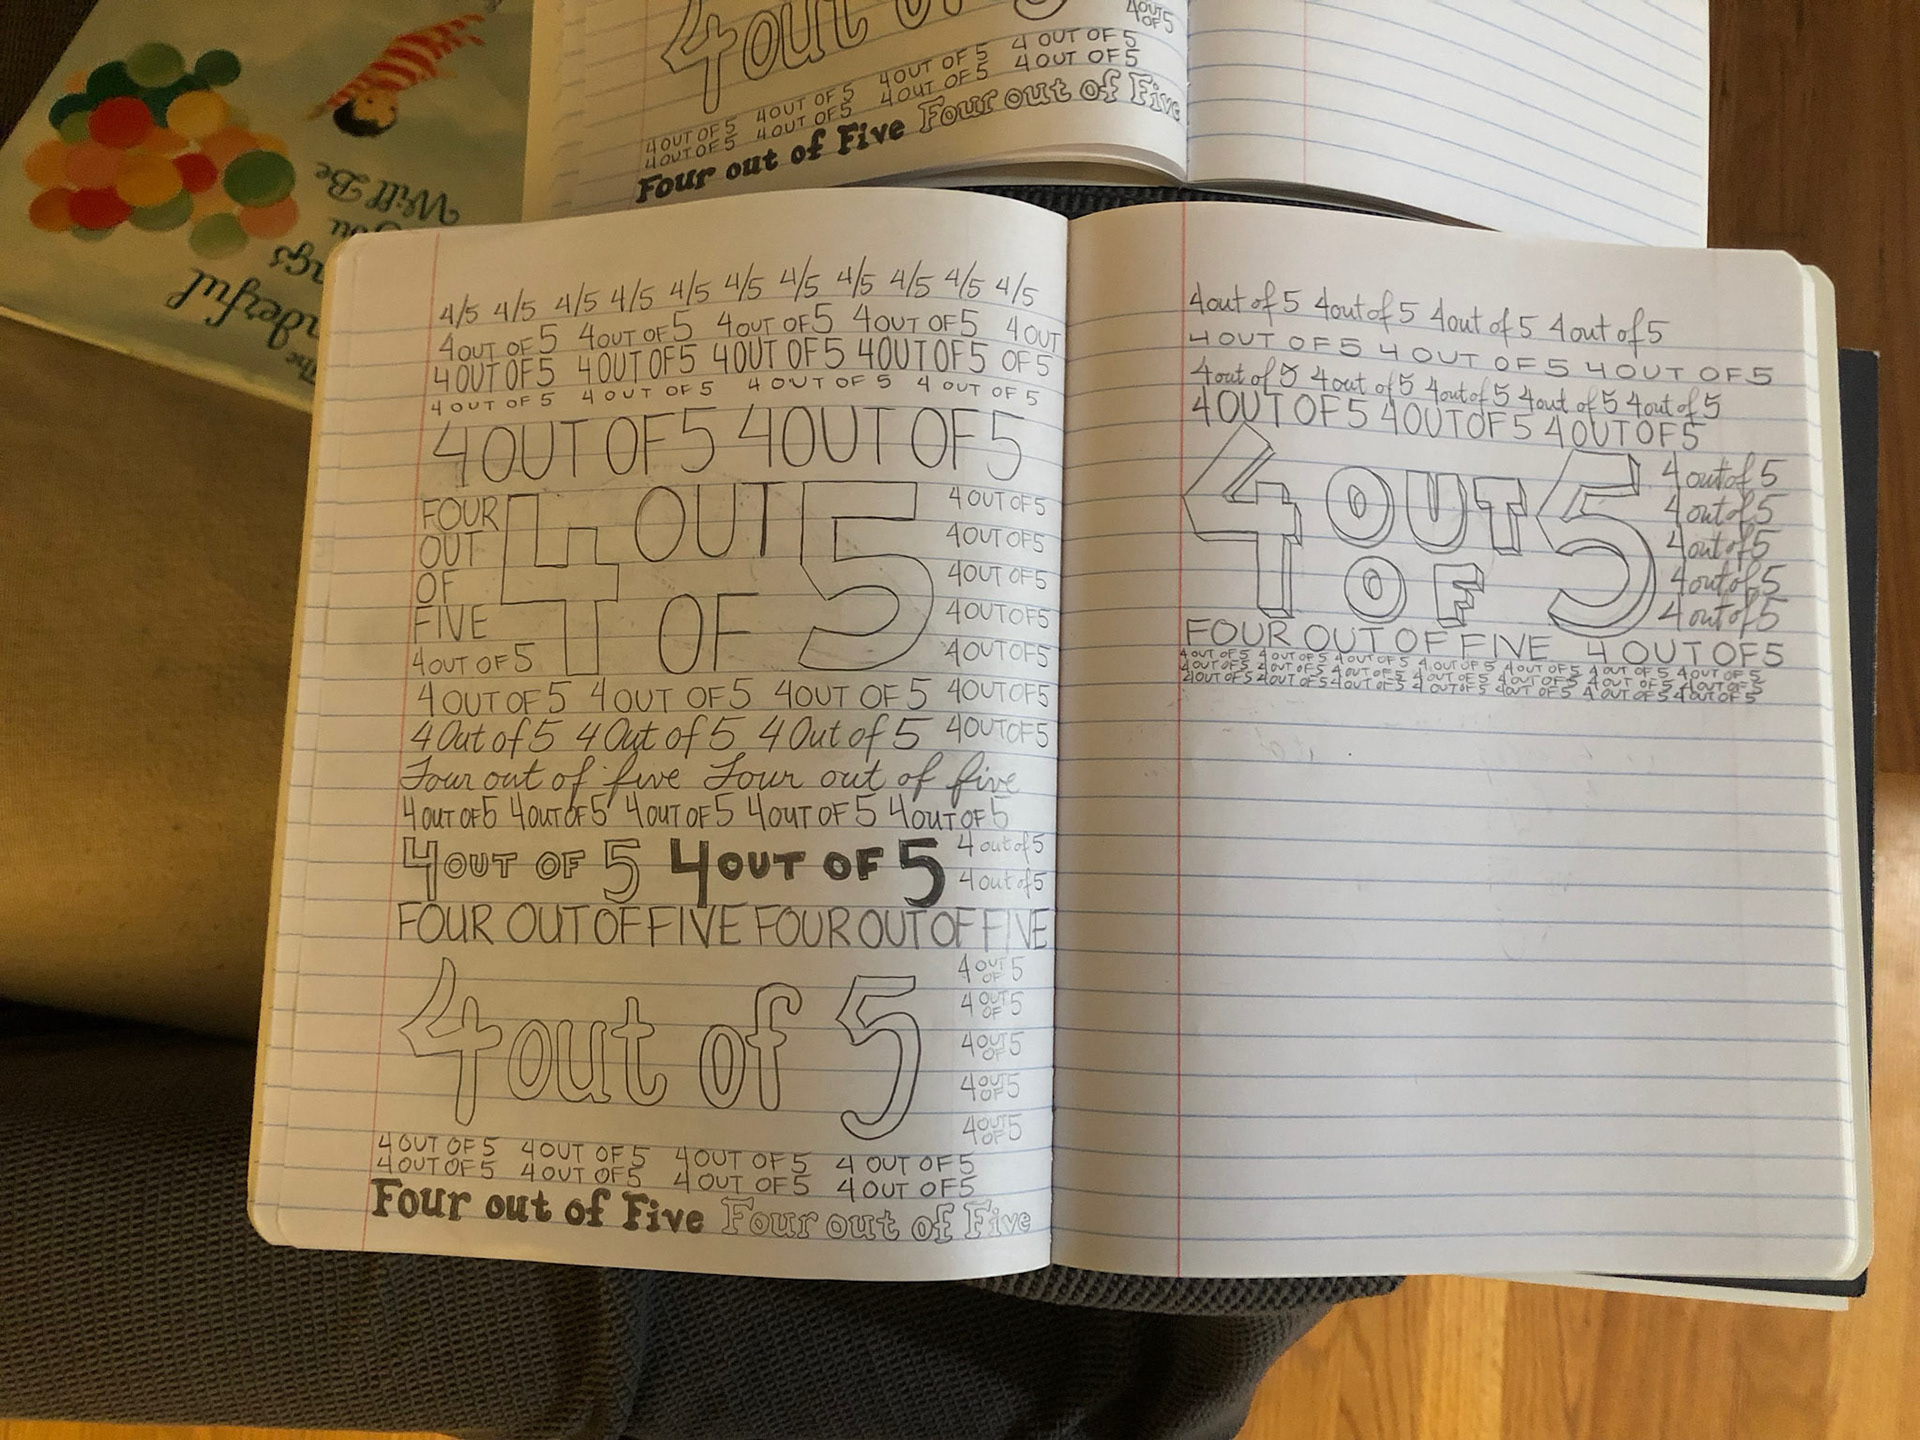 The
nderful
ngs
You
Will Be
4out of 5
4OUT OF5
4OUT OF 5 4OUT OF 5 4OUT OF 5 4 OUT OF 5
4OUT OF 5 4OUT OF 5 4OUT OF 5 4OUT OF 5
Four out of Five Four out of Five
4/5 4/5 4/5 4/5 4/5 4/5 4/5 4/5 4/5 4/5 4/5
4OUT OF 5 4OUT OF 5 4OUT OF 5 4OUT OF 5 4 OUT
4OUT OF 5 4OUT OF 5 4OUT OF 5 4OUT OF 5 OF 5
4 OUT OF 5 4 OUT OF 5 4 OUT OF 5 4 OUT OF 5
4 OUT OF 5 4OUT OF 5
FOUR
OUT
OF
FIVE
4OUT OF 5
4 OUT OF 5
4 OUT OF 5
4OUT OF 5
4OUT OF 5
4OUT OF 5
4OUT OF 5
4OUT OF 5 4OUT OF 5 4OUT OF 5 4OUT OF 5
4 Out of 5 4 Out of 5 4 Out of 5 4OUT OF 5
Four out of five Four out of five
4OUT OF 5 4OUT OF 5 4OUT OF 5 4OUT OF 5 4OUT OF 5
4OUT OF 5 4OUT OF 5 4 out of 5
4 out of 5
FOUR OUT OF FIVE FOUR OUT OF FIVE
4out of 5
4 OUT OF 5
4 OUT OF 5
4 OUT OF 5
4 OUT OF 5
4 OUT OF 5
4 OUT OF 5 4OUT OF 5 4OUT OF 5 4 OUT OF 5
4OUT OF 5 4OUT OF 5 4OUT OF 5 4OUT OF 5
Four out of Five Four out of Five
4out of 5 4out of 5 4out of 5 4out of 5
4 OUT OF 5 4 OUT OF 5 4 OUT OF 5
4out of 5 4out of 5 4out of 5 4out of 5 4out of 5
4OUT OF 5 4OUT OF 5 4OUT OF 5
4 OUT OF 5
4 out of 5
4 out of 5
4 out of 5
4 out of 5
4 out of 5
FOUR OUT OF FIVE 4 OUT OF 5
4OUT OF 5 4OUT OF 5 4OUT OF 5 4OUT OF 5 4OUT OF 5 4OUT OF 5 4OUT OF 5
4OUT OF 5 4OUT OF 5 4OUT OF 5 4OUT OF 5 4OUT OF 5 4OUT OF 5 4OUT OF 5
4OUT OF 5 4OUT OF 5 4OUT OF 5 4OUT OF 5 4OUT OF 5 4OUT OF 5 4OUT OF 5